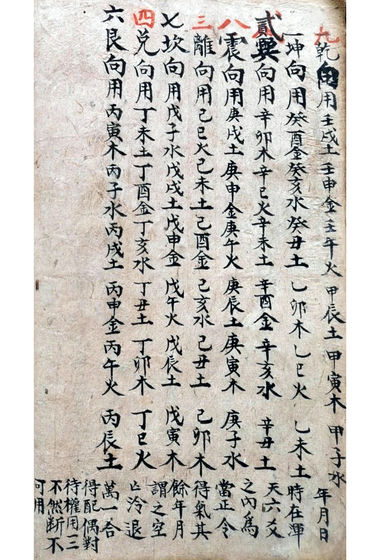 九乾向用壬戌土壬申金壬午火甲辰土甲寅木甲子水
一坤向用癸酉金癸亥水癸丑土乙卯木乙巳火乙未土
貳巽向用辛卯木辛巳火辛未土辛酉金辛亥水辛丑土
八震向用庚戌土庚申金庚午火庚辰土庚寅木庚子水
三離向用己巳火己未土己酉金己亥水己丑土己卯木
七坎向用戊子水戊戌土戊申金戊午火戊辰土戊寅木
四兌向用丁未土丁酉金丁亥水丁丑土丁卯木丁巳火
六艮向用丙寅木丙子水丙戌土丙申金丙午火丙辰土
年月日
時在渾
天六爻
之內為
當正令
得氣其
餘年月
謂之空
亡冷退
萬一合
得配偶對
待權用三
不然斷不
可用